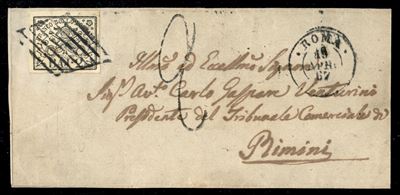 ROMA
18
APR.
67
Illmo ed Eccellmo Signore
Sigr. Avo. Carlo Gaspare Venturini
Presidente del Tribunale Comerciale di
Rimini